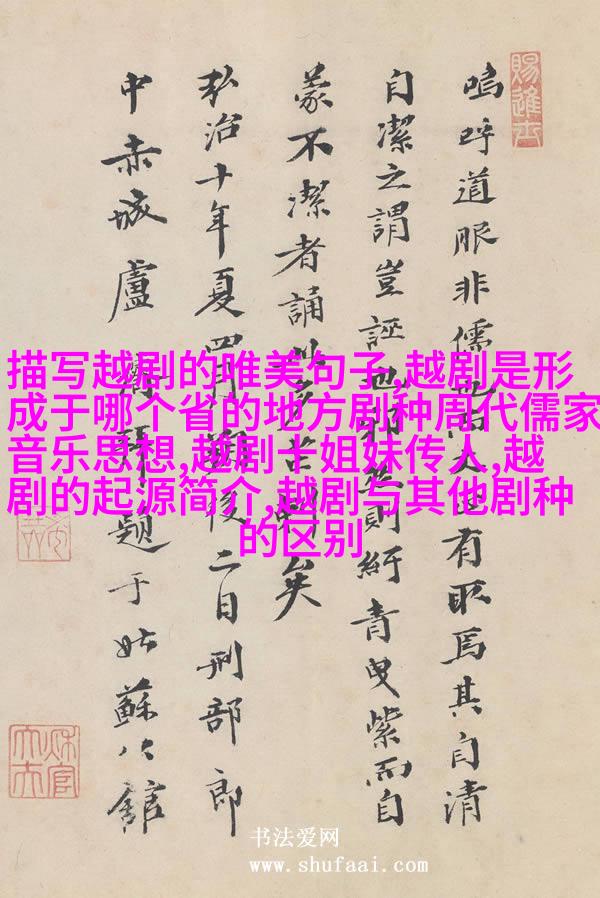 賜進士
嗚呼道服非儒也而有取焉其自清
自潔之謂豈誣也則紆青曳紫而自
蒙不潔者誦此矣
弘治十年夏四月後二日刑部郎
中赤城盧題于姑蘇公館
描写越剧的唯美句子,越剧是形
成于哪个省的地方剧种周代儒家
音乐思想,越剧十姐妹传人,越
剧的起源简介,越剧与其他剧种
的区别
书法爱网
www.shufaai.com